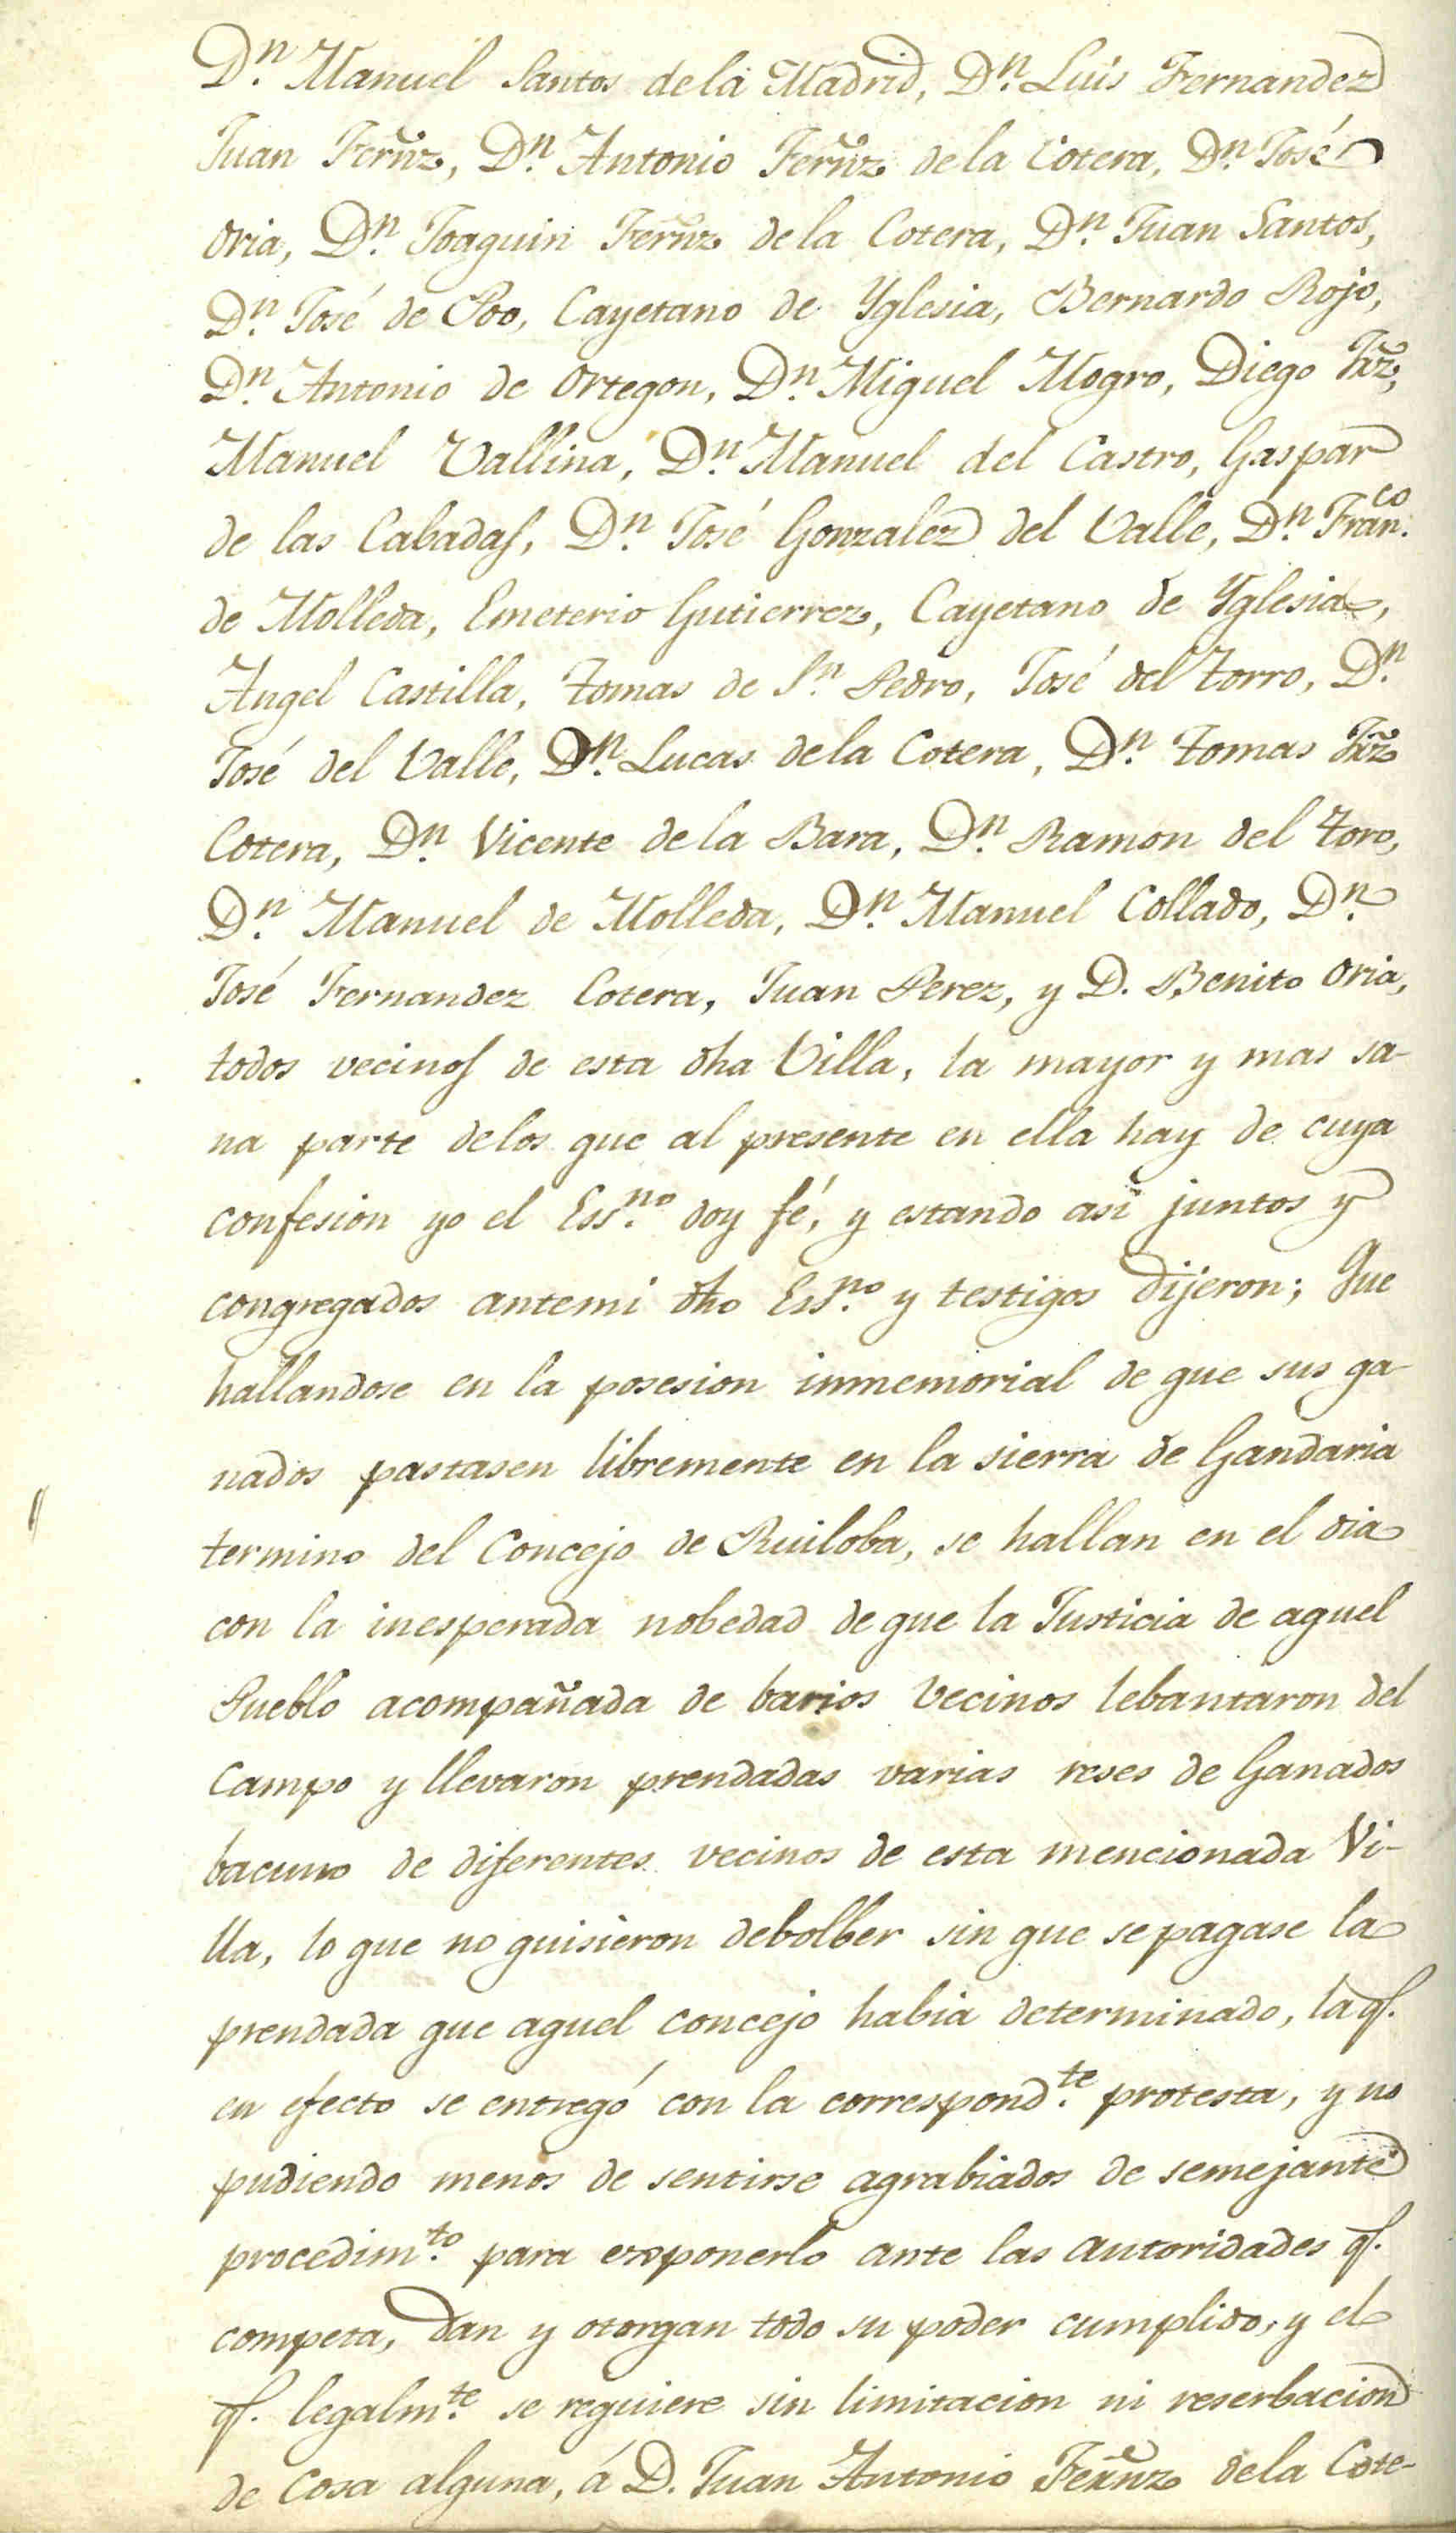 Dn. Manuel Santos de la Madrid, Dn. Luis Fernandez
Juan Fernz, Dn. Antonio Fernz de la Cotera, Dn. José
Oria, Dn. Joaquin Fernz de la Cotera, Dn. Juan Santos,
Dn. José de Poo, Cayetano de Yglesia, Bernardo Rojo,
Dn. Antonio de Ortegon, Dn. Miguel Mogro, Diego Frz,
Manuel Vallina, Dn. Manuel del Castro, Gaspar
de las Cabadas, Dn. José Gonzalez del Valle, Dn. Franco.
de Molleda, Emeterio Gutierrez, Cayetano de Yglesia,
Angel Castilla, Tomas de Sn. Pedro, José del Torro, Dn.
José del Valle, Dn. Lucas de la Cotera, Dn. Tomas Frz
Cotera, Dn. Vicente de la Bara, Dn. Ramon del Toro,
Dn. Manuel de Molleda, Dn. Manuel Collado, Dn.
José Fernandez Cotera, Juan Perez, y D. Benito Oria,
todos vecinos de esta dha Villa, la mayor y mas sa-
na parte delos que al presente en ella hay de cuya
confesion yo el Essno. doy fé, y estando asi juntos y
congregados antemi dho Essno. y testigos dijeron; Que
hallandose en la posesion inmemorial de que sus ga-
nados pastasen libremente en la sierra de Gandaria
termino del Concejo de Ruiloba, se hallan en el dia
con la inesperada nobedad de que la Justicia de aquel
Pueblo acompañada de barios Vecinos lebantaron del
Campo y llevaron prendadas varias reses de Ganados
bacuno de diferentes vecinos de esta mencionada Vi-
lla, lo que no quisieron debolber sin que se pagase la
prendada que aquel concejo habia determinado, la q.
en efecto se entregó con la correspondte. protesta, y no
pudiendo menos de sentirse agrabiados de semejante
procedimto. para exponerlo ante las autoridades q.
competa, dan y otorgan todo su poder cumplido, y el
q. legalmte. se requiere sin limitacion ni reserbacion
de Cosa alguna, á D. Juan Antonio Fernz de la Cote-